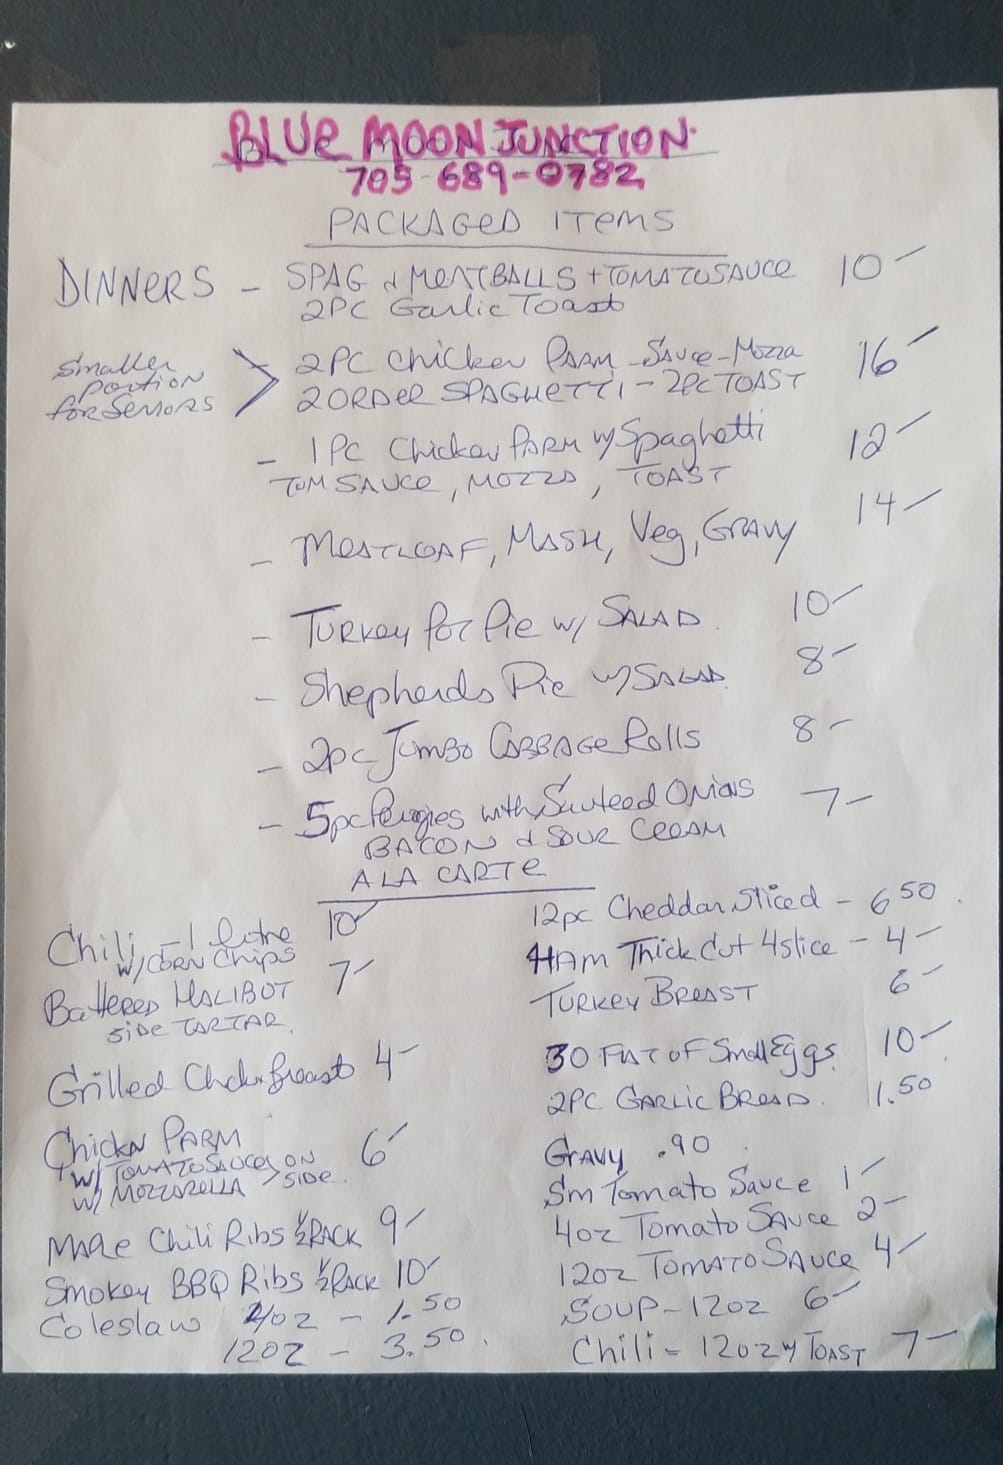 BLUE MOON JUNCTION
705-689-0782
PACKAGED ITEMS
DINNERS - SPAG & MEATBALLS + TOMATO SAUCE 10-
2PC Garlic Toast
Smaller portion for Seniors > 2PC Chicken PARM - SAUCE - Mozza 16-
2 ORDER SPAGHETTI - 2PC TOAST
- 1PC Chicken PARM w/ Spaghetti 12-
TOM SAUCE, MOZZA, TOAST
- MEATLOAF, MASH, Veg, GRAVY 14-
- TURKEY Pot Pie w/ SALAD 10-
- Shepherds Pie w/ SALAD 8-
- 2pc Jumbo CABBAGE Rolls 8-
- 5pc Perogies with Sauteed Onions 7-
BACON & SOUR CREAM
ALA CARTE
Chili - 1 litre 10-
w/ CORN Chips
Battered HALIBUT 7-
side TARTAR.
Grilled Chckn Breast 4-
Chickn PARM 6-
w/ TOMATO SAUCE > ON SIDE.
w/ MOZZARELLA
Maple Chili Ribs 1/2 RACK 9-
Smokey BBQ Ribs 1/2 RACK 10-
Coleslaw 4oz - 1.50
12oz - 3.50.
12pc Cheddar Sliced - 6 50.
HAM Thick Cut 4 slice - 4-
TURKEY BREAST 6-
30 FLAT OF Small Eggs. 10-
2PC GARLIC BREAD. 1.50
GRAVY .90
Sm Tomato Sauce 1-
4oz Tomato SAUCE 2-
12oz TOMATO SAUCE 4-
SOUP - 12oz 6-
Chili - 12oz w/ TOAST 7-